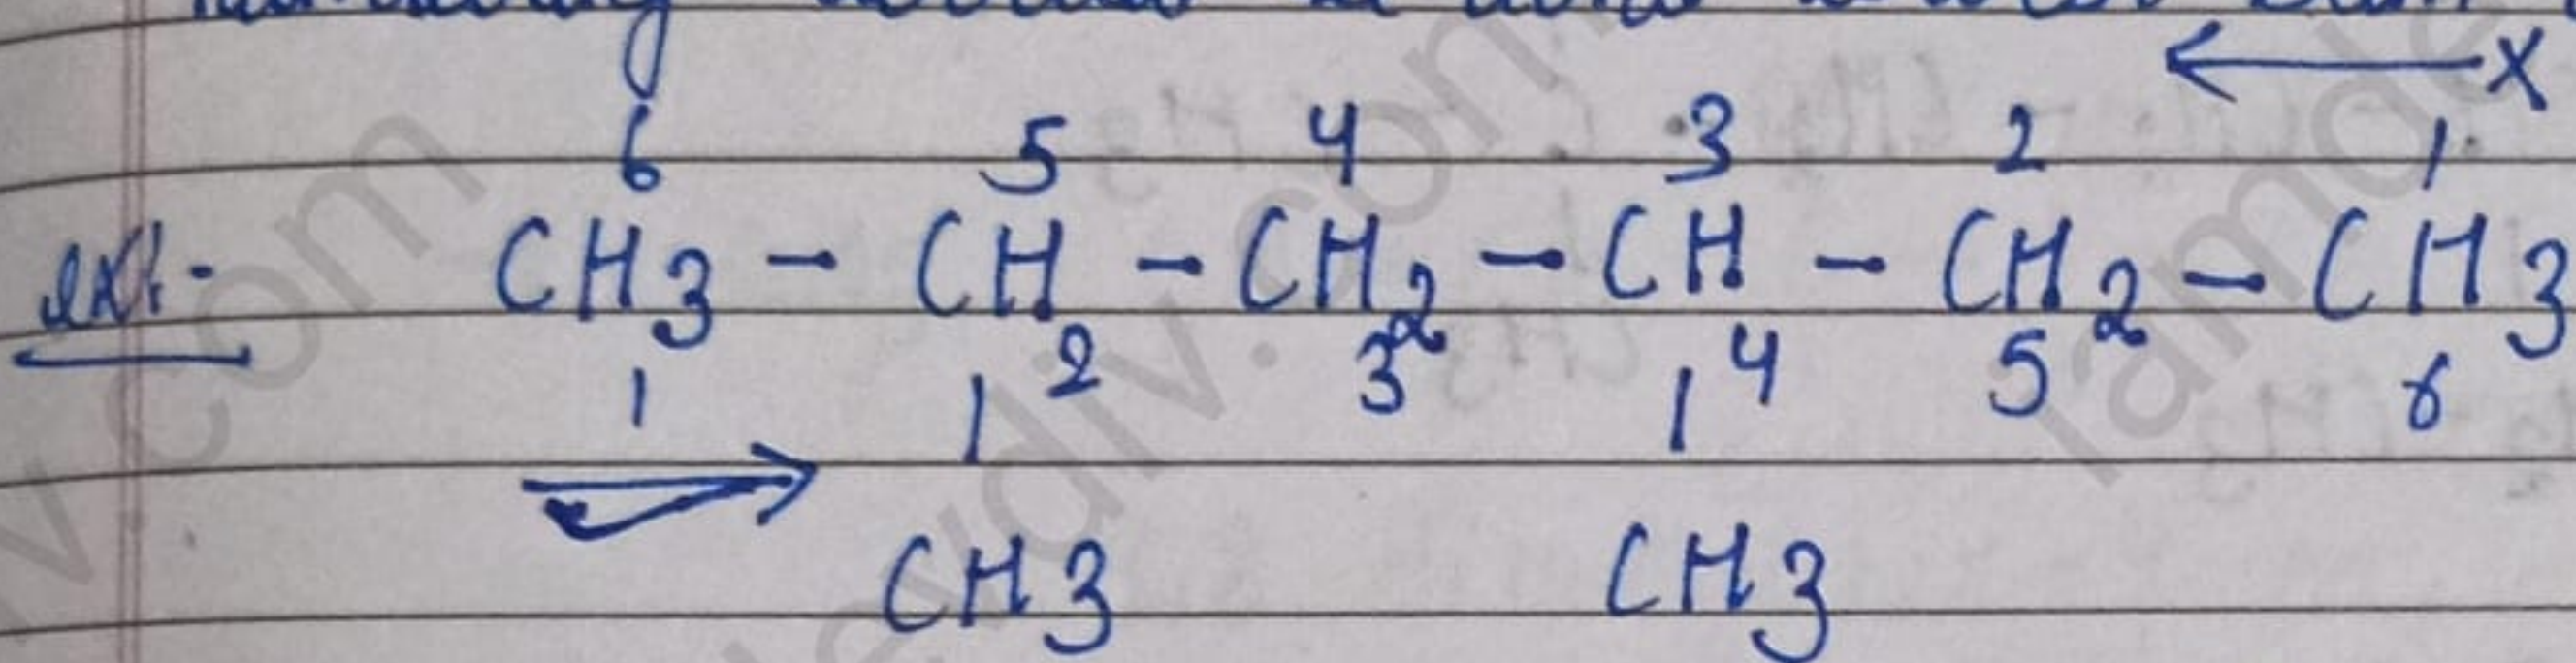 6 5 4 3 2 1
ex:- CH3 - CH - CH2 - CH - CH2 - CH3
1 2 3 4 5 6
| |
CH3 CH3